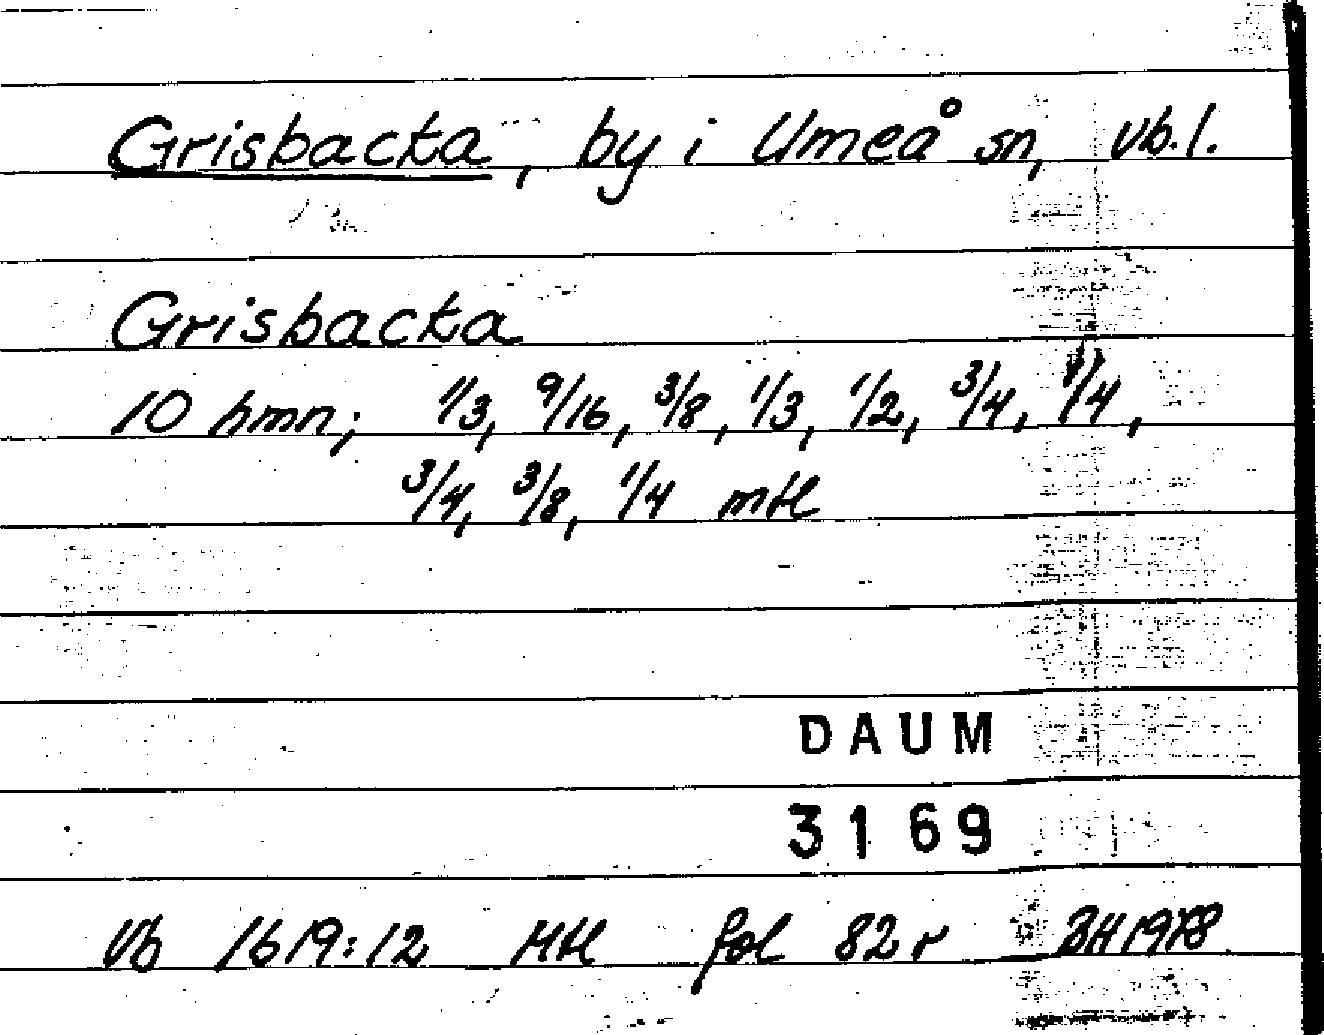 Grisbacka, by i Umeå sn, vb.l.
Grisbacka
10 hmn; 1/3, 9/16, 3/8, 1/3, 1/2, 3/4, 1/4,
3/4, 3/8, 1/4 mtl
DAUM
3169
Vb 1619:12 Mtl fol 82 r BH 1978